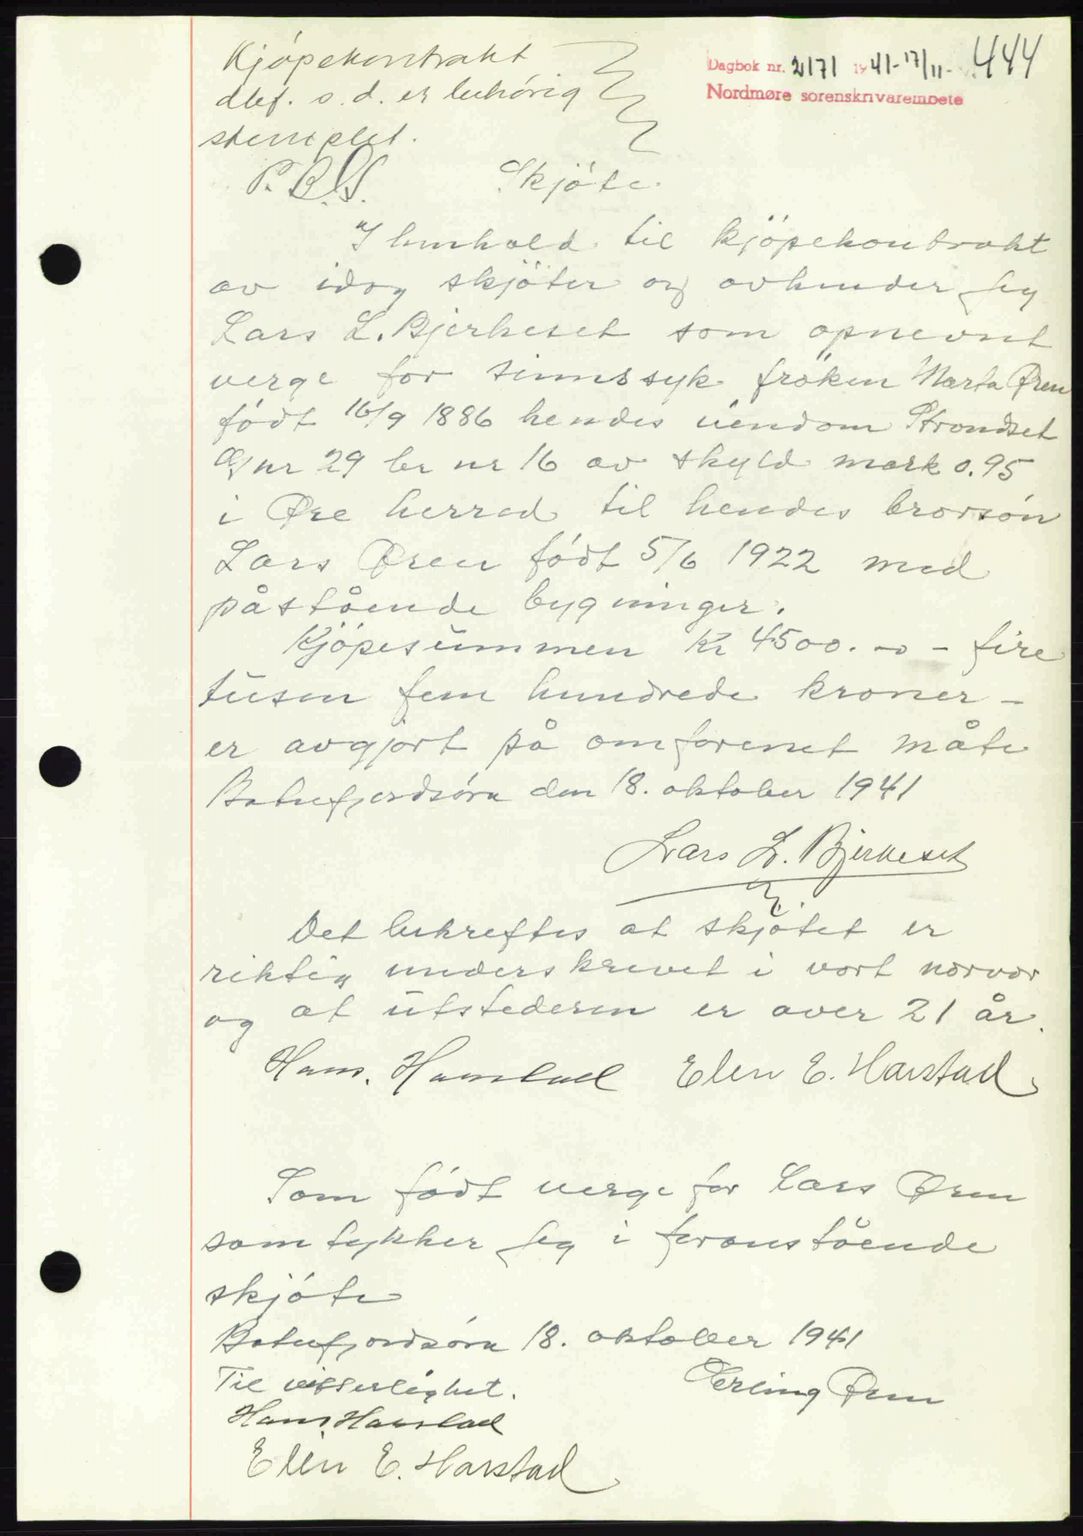 Kjøpekontrakt
dbf. s. d. er behörig
stemplet.
Dagbok nr. 2171 1941-17/11- 444
Nordmøre sorenskriverembete
Skjöte.
I henhold til kjöpekontrakt
av idag skjöter og avhender jeg
Lars L. Bjerkeset som opnevnt
verge for sinnssyk fröken Marta Øren
födt 16/9 1886 hendes eiendom Strandset
Gnr 29 br nr 16 av skyld mark 0.95
i Øre herred til hendes brorsön
Lars Øren födt 5/6 1922 med
påstående bygninger.
Kjöpesummen Kr 4500.-o- fire
tusen fem hundrede kroner -
er avgjort på omforenet måte
Batnfjordsöra den 18. oktober 1941
Lars L. Bjerkeset
Det bekreftes at skjötet er
riktig underskrevet i vort nærvær
og at utstederen er over 21 år.
Hans Harstad Elen E. Harstad
Som födt verge for Lars Øren
samtykker jeg i foranstående
skjöte
Batnfjordsöra 18. oktober 1941
Til vitterlighet. Erling Øren
Hans Harstad
Elen E. Harstad